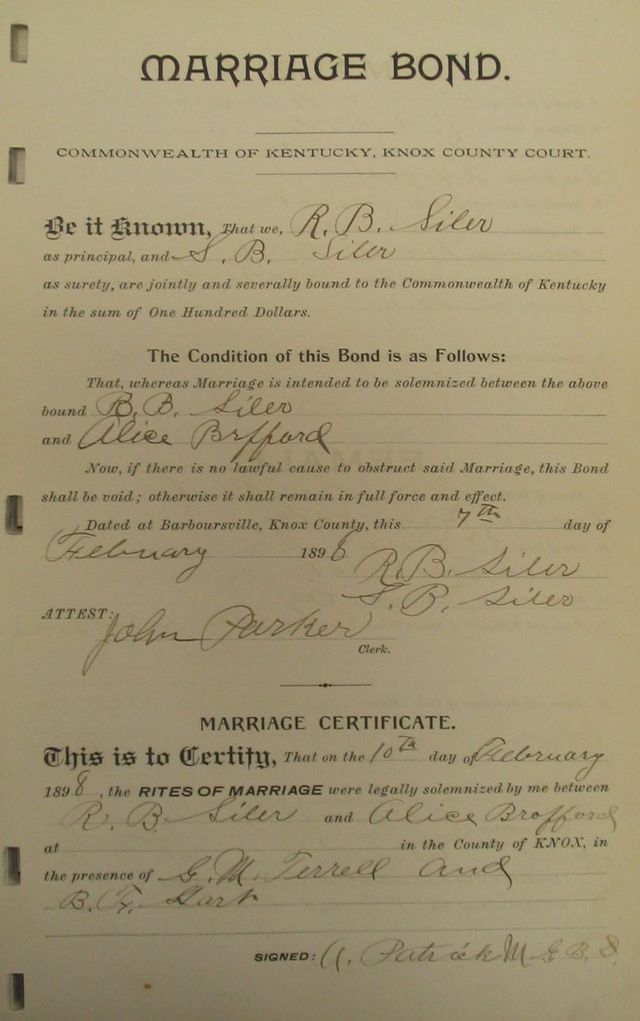 MARRIAGE BOND.
COMMONWEALTH OF KENTUCKY, KNOX COUNTY COURT.
Be it Known, That we, R. B. Siler
as principal, and S. B. Siler
as surety, are jointly and severally bound to the Commonwealth of Kentucky
in the sum of One Hundred Dollars.
The Condition of this Bond is as Follows:
That, whereas Marriage is intended to be solemnized between the above
bound R. B. Siler
and Alice Brofford
Now, if there is no lawful cause to obstruct said Marriage, this Bond
shall be void; otherwise it shall remain in full force and effect.
Dated at Barboursville, Knox County, this 7th day of
February 1898
R. B. Siler
S. B. Siler
ATTEST: John Parker
Clerk.
MARRIAGE CERTIFICATE.
This is to Certify, That on the 10th day of February
1898, the RITES OF MARRIAGE were legally solemnized by me between
R. B. Siler and Alice Brofford
at in the County of KNOX, in
the presence of G. M. Terrell and
B. F. Hart
SIGNED: Patrick M G B